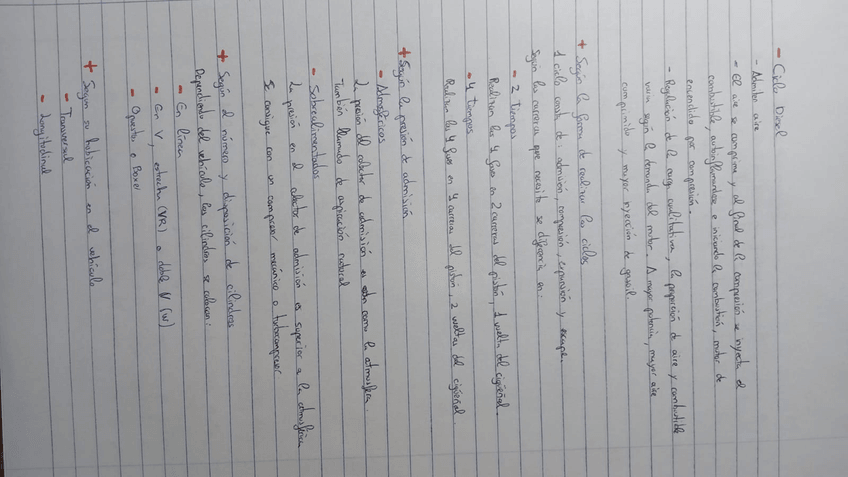 - Ciclo Diesel
- Admite aire
- El aire se comprime y al final de la compresión se inyecta el
combustible, autoinflamandose e iniciando la combustión, motor de
encendido por compresión.
- Regulación de la carga cualitativa, la proporción de aire y combustible
varia según la demanda del motor. A mayor potencia, mayor aire
comprimido y mayor inyección de gasoil
+ Según la forma de realizar los ciclos
1 ciclo consta de: admisión, compresión, expansión y escape.
Según las carreras que necesite se diferencia en:
- 2 tiempos
Realizan las 4 fases en 2 carreras del pistón, 1 vuelta del cigüeñal.
- 4 tiempos
Realizan las 4 fases en 4 carreras del piston, 2 vueltas del cigüeñal.
+ Según la presión de admisión
- Atmosféricos
La presión del colector de admisión es como la atmosfera.
También llamado de aspiración natural
- Sobrealimentados
La presión en el colector de admisión es superior a la atmosférica
Se consigue con un compresor mecánico o turbocompresor
+ Según el número y disposición de cilindros
Dependiendo del vehículo, los cilindros se colocan:
- En línea
- En V, estrecha (VR) o doble V (W)
- Opuestos o Boxer
+ Según su hubicación en el vehículo
- Transversal
- Longitudinal